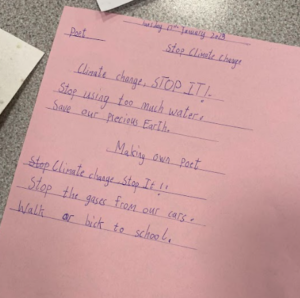 January
Poet
Stop Climate Change
Climate change, STOP IT!
Stop using too much water.
Save our precious Earth.
Making own poet
Stop Climate change Stop It!
Stop the gases from our cars.
Walk or bick to school.